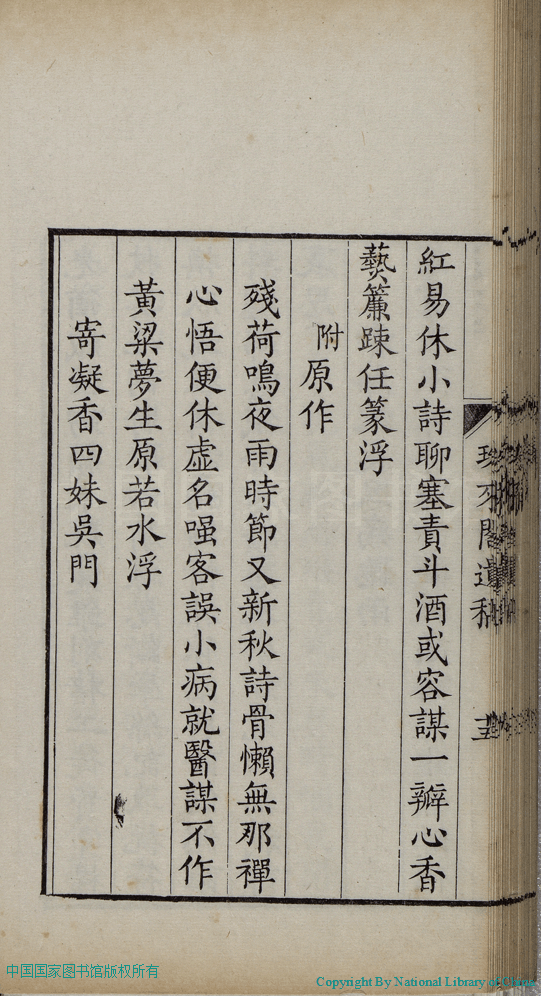 紅易休小詩聊塞責斗酒或容謀一瓣心香
爇簾踈任篆浮
附原作
殘荷鳴夜雨時節又新秋詩骨懶無那禪
心悟便休虛名嗤客誤小病就醫謀不作
黃粱夢生原若水浮
寄凝香四妹吳門
中国国家图书馆版权所有
Copyright By National Library of China